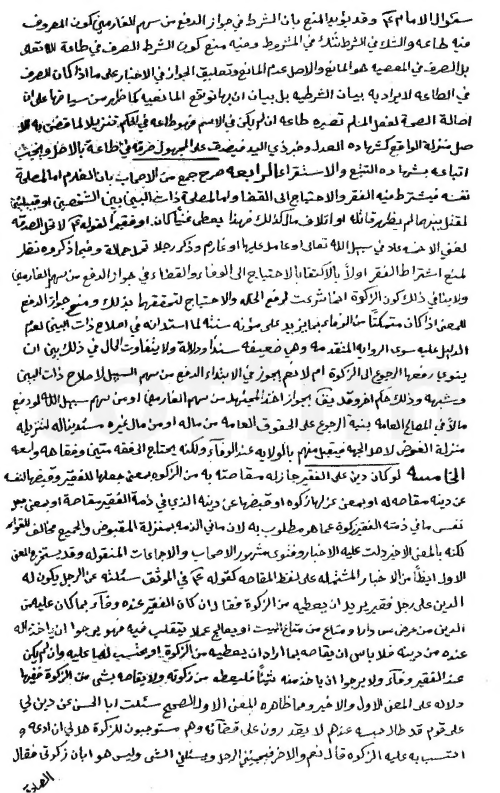 سؤال الامام ع وقد يؤيد المنع بان الشرط في جواز الدفع من سهم الغارمين كون المصروف
فيه طاعه والشك في الشرط شك في المشروط وفيه منع كون الشرط الصرف في طاعة
بل الصرف في المعصيه هو المانع والاصل عدم المانع وتعليق الجواز في الاخبار على ما اذا كان الصرف
في الطاعه لا يراد به بيان الشرطيه بل بيان
اصالة الصحه لفعل المسلم تصيره طاعه ان لم يكن في الاسم فهو طاعه في الحكم تنزيلا
منزلة الواقع كشهاده العدل وخبر ذي اليد على المجهول في طاعة بالاصل
اتباعه بشهاده التتبع والاستقراء الرابعه صرح جمع من الاصحاب بان الغارم اما لمصلحة
نفسه فيشترط فيه الفقر والاحتياج الى القضاء واما لمصلحة ذات البين بين الشخصين او قبيلتين
لقتل بينهما لم يظهر قاتله او اتلاف مال كذلك فهذا يعطى غنيا كان او فقيرا لقوله ع لا تحل الصدقه
لغني الا خمسه غاز في سبيل الله تعالى او عامل عليها او غارم وذكر رجلا تحمل حماله وفيما ذكروه نظر
لمنع اشتراط الفقر اولا بالاكتفاء بالاحتياج الى الوفاء والقضاء في جواز الدفع من سهم الغارمين
ولا ينافي ذلك كون الزكوة انما شرعت لرفع الخله والاحتياج لتحققهما بذلك ومنع جواز الدفع
للغني اذا كان متمكنا من الوفاء بما يزيد على مؤنه سنته لما استدانه في اصلاح ذات البين لعدم
الدليل عليه سوى الروايه المتقدمه وهي ضعيفه سندا ودلالة ولا يتفاوت الحال في ذلك بين ان
ينوي بدفعها الرجوع الى الزكوة ام لا نعم يجوز في الابتداء الدفع من سهم السبيل لاصلاح ذات البين
وشبهه وذلك حكم اخر وقد يق بجواز اخذ المجتهد من سهم الغارمين او من سهم سبيل الله لو دفع
مالا في المصالح العامه بنيه الرجوع على الحقوق العامه من ماله او من مال غيره مستدينا له لتنزيله
منزلة العوض لاهل الجهه منهم بالولايه عند الوفاء ولكنه يحتاج الى فقه متين وفقاهه واسعه
الخامسه لو كان دين على الفقير جاز له مقاصته به من الزكوه بمعنى جعلها للفقير وقبضها لنفسه
عن دينه مقاصه له او بمعنى عزلها زكوة او قبضها عن دينه الذي في ذمة الفقير مقاصة او بمعنى جعل
نفس ما في ذمته الفقير زكوة عما هو مطلوب به لان ما في الذمه بمنزلة المقبوض والجميع مخالف للقواعد
لكنه بالمعنى الاخير دلت عليه الاخبار وفتوى مشهور الاصحاب والاجماعات المنقوله وقد يستخرج المعنى
الاول ايضا من الاخبار المشتمله على لفظ المقاصه كقوله ع في الموثق سئلته عن الرجل يكون له
الدين على رجل فقير يريد ان يعطيه من الزكوة فقال ان كان الفقير عنده وفاء بما كان عليه من
الدين من عرض من دار او متاع من متاع البيت او يعالج عملا يتقلب فيه فهو يرجوا ان ياخذ ماله
عنده من دينه فلا باس ان يقاصه بما اراد ان يعطيه من الزكوة او يحتسب بها عليه وان لم يكن
عند الفقير وفاء ولا يرجوا ان ياخذ منه شيئا فليعطه من زكوته ولا يقاصه بشي من الزكوة ففيها
دلاله على المعنى الاول والاخير ومما ظاهره المعنى الاول الصحيح سئلت ابا الحسن عن دين لي
على قوم قد طال حبسه عندهم لا يقدرون على قضائه وهم مستوجبون للزكوة هل لي ان ادعه و
احتسب به عليه الزكوه قال نعم والاخر فيجيئني الرجل ويسئلني الشي وليس هو ابان زكوتي فقال
الصادق